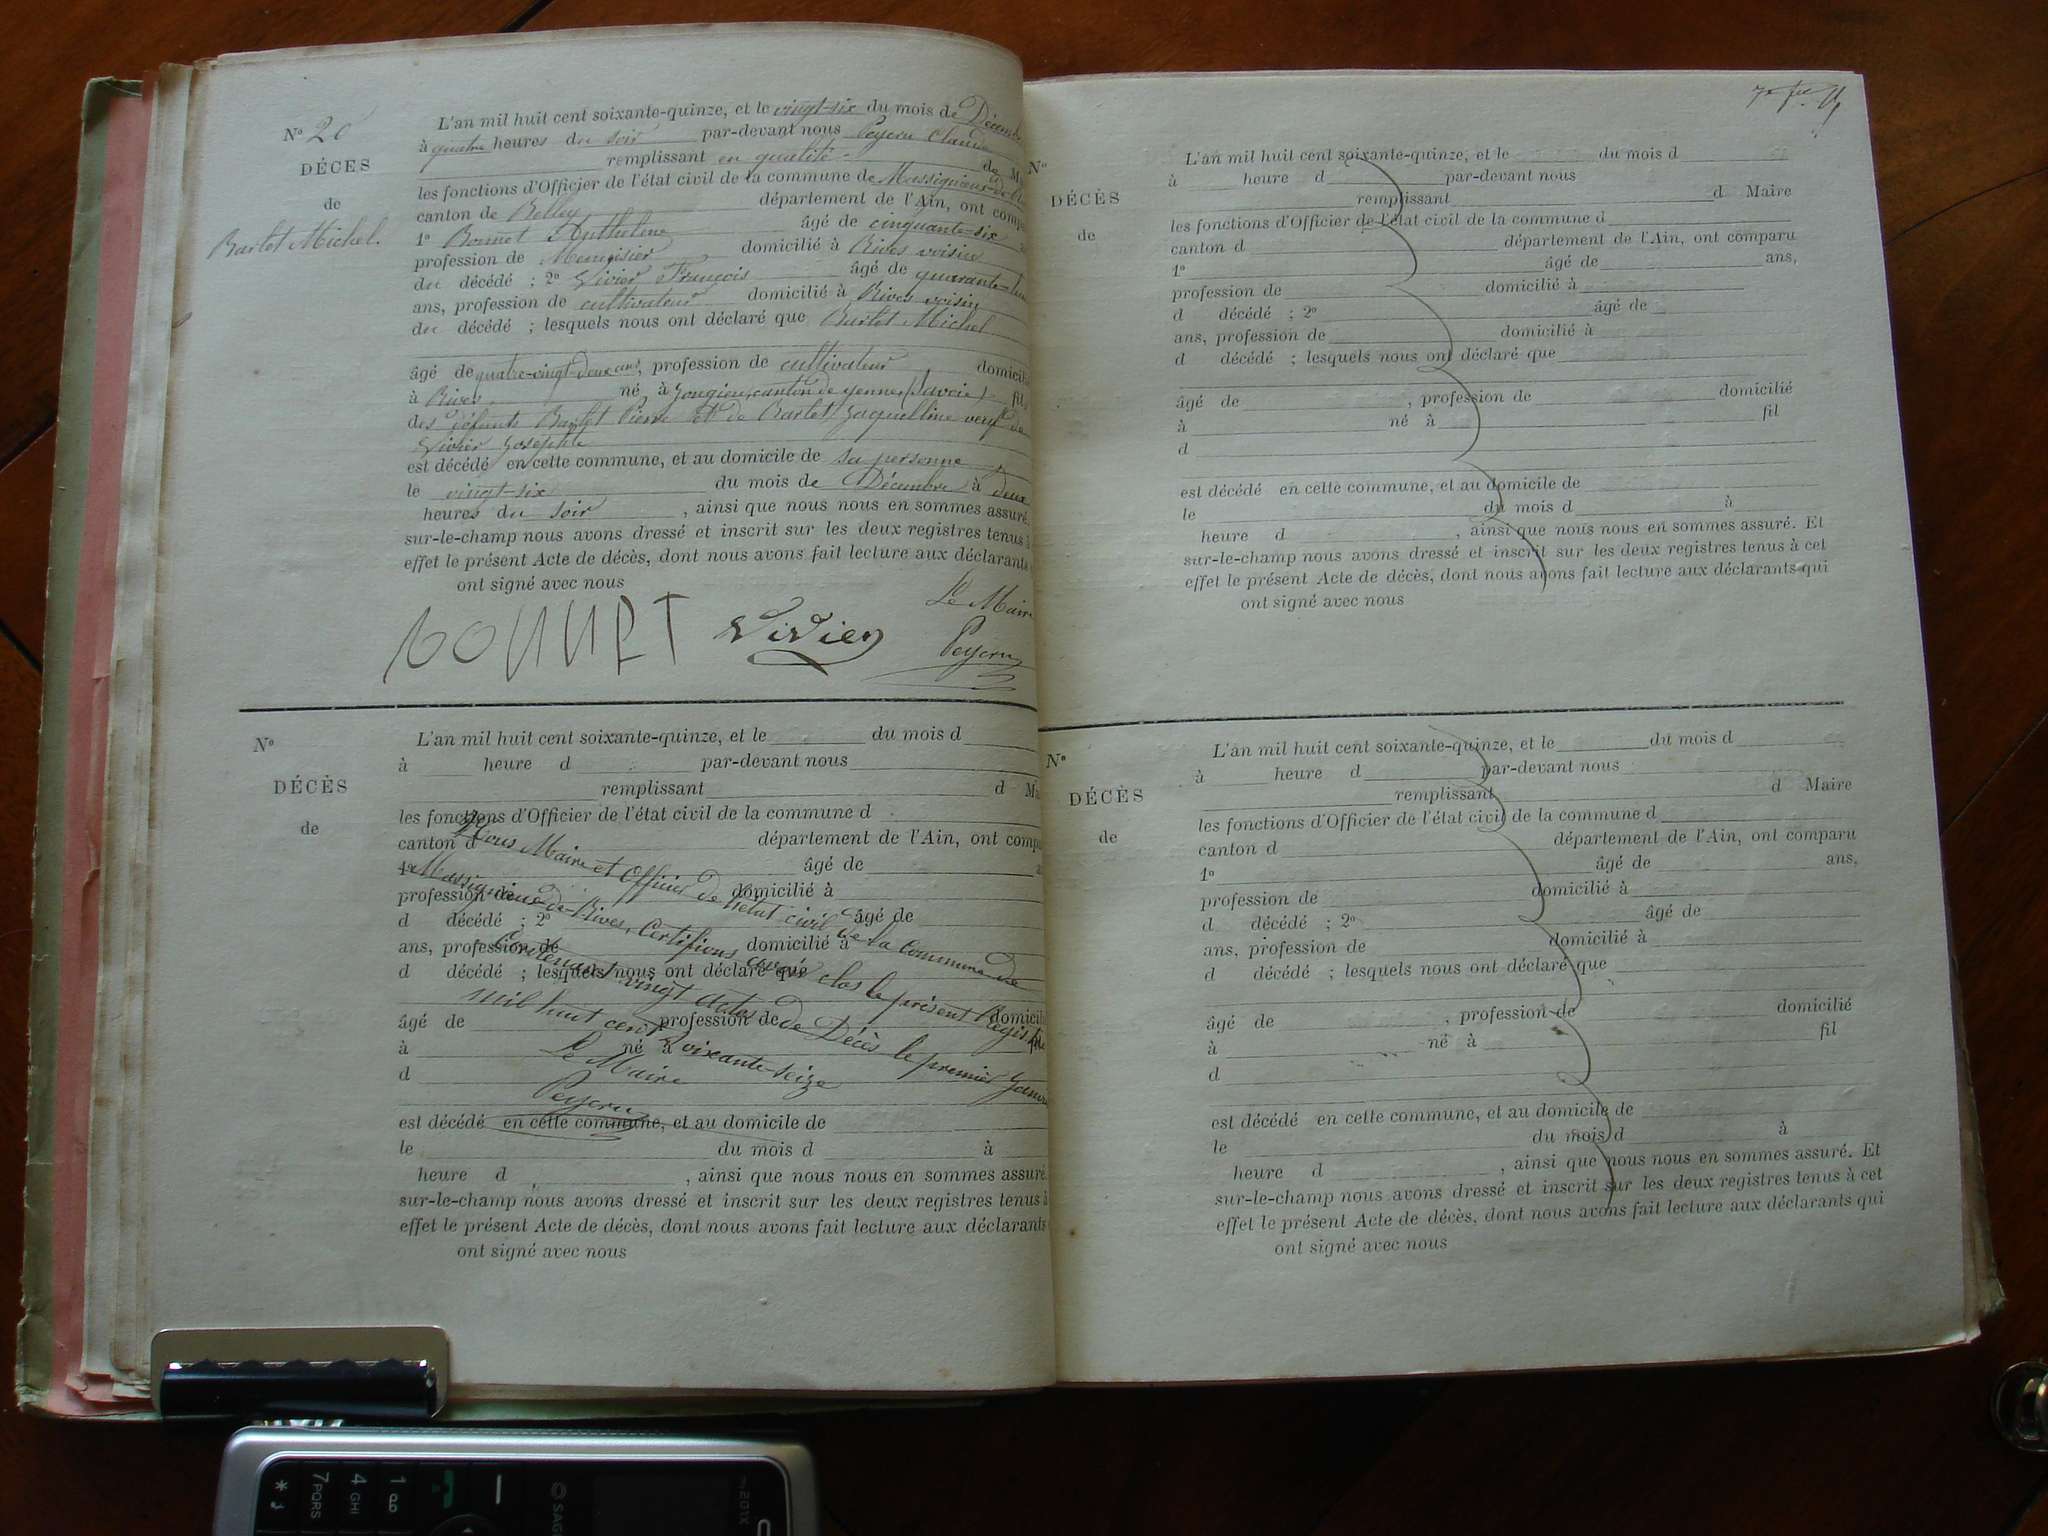 N° 20
DÉCÈS
de
Barlet Michel.
L'an mil huit cent soixante-quinze, et le vingt-six du mois de Décemb
à quatre heures du soir par-devant nous Peycru Claude
remplissant en qualité de M
les fonctions d'Officier de l'état civil de la commune de Massignieu-de-
canton de Belley département de l'Ain, ont comp
1° Bonnet Anthelme âgé de cinquante-six
profession de Menuisier domicilié à Rives voisin
du décédé ; 2° Vivier François âgé de quarante-
ans, profession de cultivateur domicilié à Rives voisin
du décédé ; lesquels nous ont déclaré que Barlet Michel
âgé de quatre-vingt-deux ans, profession de cultivateur domicili
à Rives né à Jongieu, canton de Yenne, (Savoie) fil
des défunts Barlet Pierre et de Barlet Jacqueline veuf de
Vivier Josephte
est décédé en cette commune, et au domicile de sa personne
le vingt-six du mois de Décembre à deux
heures du soir, ainsi que nous nous en sommes assuré.
sur-le-champ nous avons dressé et inscrit sur les deux registres tenus à
effet le présent Acte de décès, dont nous avons fait lecture aux déclarants
ont signé avec nous
Le Maire
Vivier
Peycru
N°
DÉCÈS
de
L'an mil huit cent soixante-quinze, et le du mois d
à heure d par-devant nous
remplissant d Ma
les fonctions d'Officier de l'état civil de la commune d
canton d département de l'Ain, ont comp
1° âgé de
profession de domicilié à
d décédé ; 2° âgé de
ans, profession de domicilié à
d décédé ; lesquels nous ont déclaré que
âgé de profession de domicili
à né à fil
d
est décédé en cette commune, et au domicile de
le du mois d à
heure d , ainsi que nous nous en sommes assuré.
sur-le-champ nous avons dressé et inscrit sur les deux registres tenus à
effet le présent Acte de décès, dont nous avons fait lecture aux déclarants
ont signé avec nous
Nous Maire et Officier de l'état civil de la commune de
Massignieu-de-Rives, Certifions avoir clos le présent Registre
Contenant vingt actes de Décès le premier Janvi
mil huit cent soixante-seize
Le Maire
Peycru
N°
DÉCÈS
de
L'an mil huit cent soixante-quinze, et le du mois d
à heure d par-devant nous
remplissant d Maire
les fonctions d'Officier de l'état civil de la commune d
canton d département de l'Ain, ont comparu
1° âgé de ans,
profession de domicilié à
d décédé ; 2° âgé de
ans, profession de domicilié à
d décédé ; lesquels nous ont déclaré que
âgé de , profession de domicilié
à né à fil
d
est décédé en cette commune, et au domicile de
le du mois d à
heure d , ainsi que nous nous en sommes assuré. Et
sur-le-champ nous avons dressé et inscrit sur les deux registres tenus à cet
effet le présent Acte de décès, dont nous avons fait lecture aux déclarants qui
ont signé avec nous
N°
DÉCÈS
de
L'an mil huit cent soixante-quinze, et le du mois d
à heure d par-devant nous
remplissant d Maire
les fonctions d'Officier de l'état civil de la commune d
canton d département de l'Ain, ont comparu
1° âgé de ans,
profession de domicilié à
d décédé ; 2° âgé de
ans, profession de domicilié à
d décédé ; lesquels nous ont déclaré que
âgé de , profession de domicilié
à né à fil
d
est décédé en cette commune, et au domicile de
le du mois d à
heure d , ainsi que nous nous en sommes assuré. Et
sur-le-champ nous avons dressé et inscrit sur les deux registres tenus à cet
effet le présent Acte de décès, dont nous avons fait lecture aux déclarants qui
ont signé avec nous
my201X
SAG
1
4 GHI
7 PQRS
*